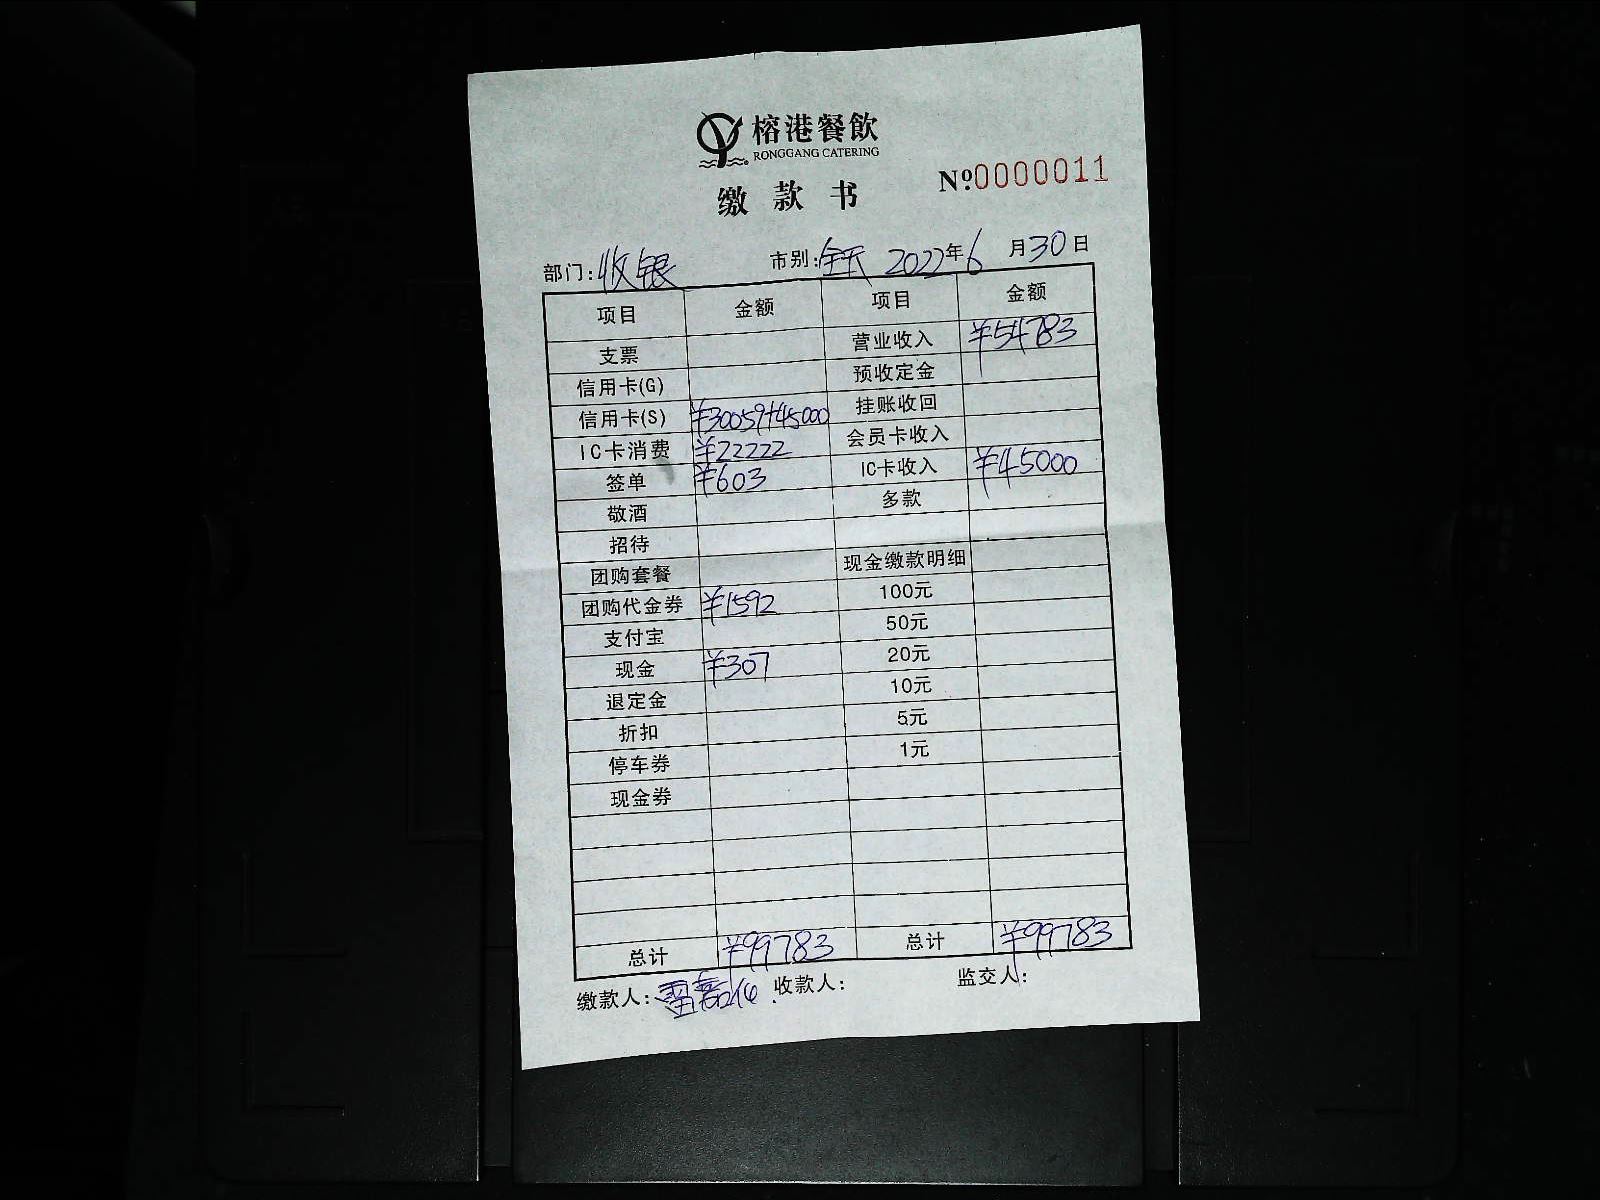 榕港餐飲
RONGGANG CATERING
缴款书 №0000011
部门:收银 市别:全天 2022年6月30日
项目 金额 项目 金额
支票 营业收入 ¥54783
信用卡(G) 预收定金
信用卡(S) ¥30059+45000 挂账收回
IC卡消费 ¥22222 会员卡收入
签单 ¥603 IC卡收入 ¥45000
敬酒 多款
招待
团购套餐 现金缴款明细
团购代金券 ¥1592 100元
支付宝 50元
现金 ¥307 20元
退定金 10元
折扣 5元
停车券 1元
现金券
总计 ¥99783 总计 ¥99783
缴款人: 收款人: 监交人: